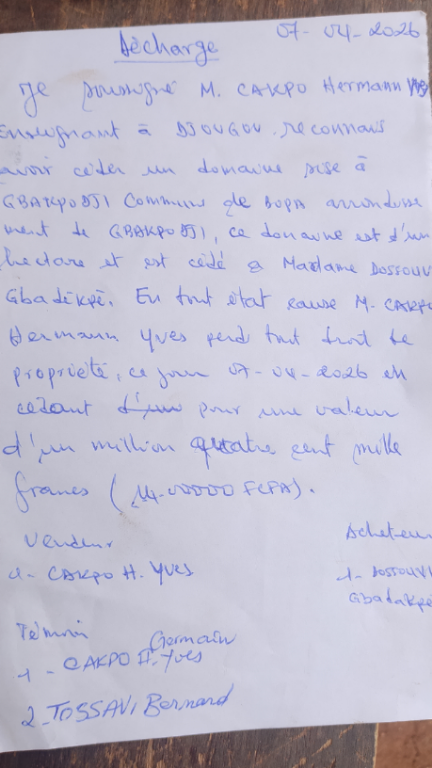 Décharge
07-04-2026
Je soussigné M. CAKPO Hermann
Enseignant à DJOUGOU. reconnais
avoir céder un domaine sise à
GBAKPODJI Commune de BOPA arrondisse
ment de GBAKPODJI, ce domaine est d'un
hectare et est cédé à Madame DOSSOUVI
Gbadékpé. En tout état cause M. CAKPO
Hermann Yves perd tout droit de
propriété, ce jour 07-04-2026 en
cédant d'un pour une valeur
d'un million quatre cent mille
francs (14.00000 FCFA).
Vendeur
1- CAKPO H. Yves
Acheteur
1- DOSSOUVI
Gbadakpé
Témoin
Germain
1- CAKPO H. Yves
2-TOSSAVI Bernard